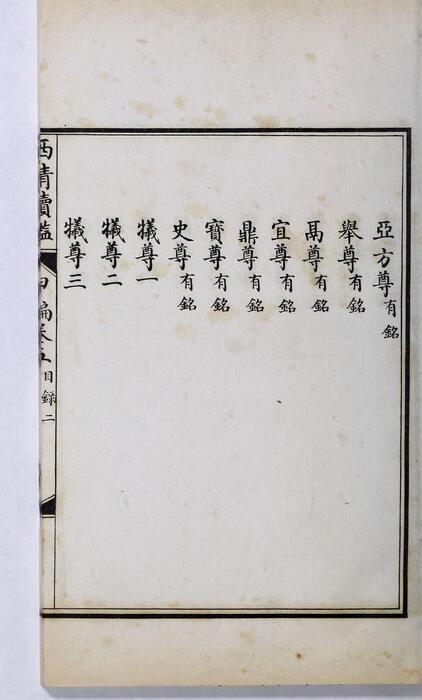 亞方尊有銘
舉尊有銘
禹尊有銘
宜尊有銘
鼎尊有銘
寶尊有銘
史尊有銘
犧尊一
犧尊二
犧尊三
西清續鑑 甲編卷五 目錄 二